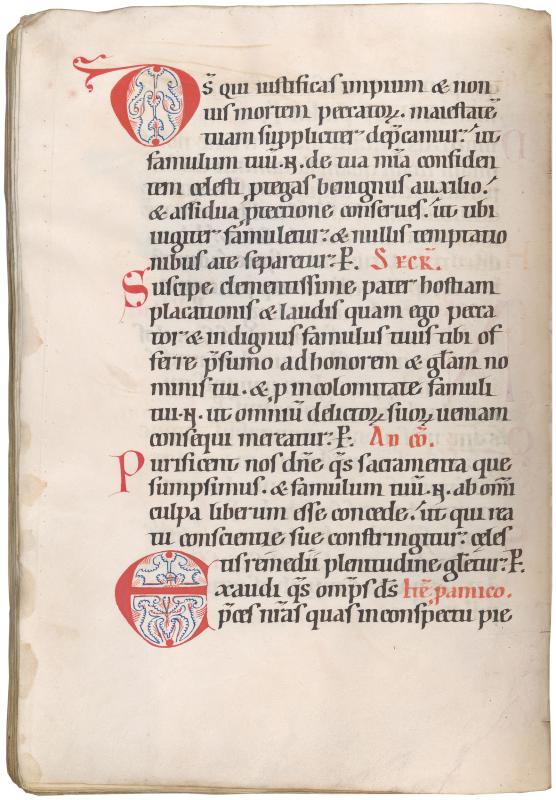 Ds̄ qui iustificas impium & non
uis mortem peccatoꝝ. maiestatē
tuam suppliciter dep̄camur: ut
famulum tuū .N. de tua mīa confiden
tem celesti ꝓtegas benignus auxilio.
& assidua ꝓtectione conserues. ut tibi
iugiter famuletur: & nullis temptatio
nibus a te separetur: P̄. Secr̄.
Suscipe clementissime pater hostiam
placationis & laudis quam ego pecca
tor & indignus famulus tuus tibi of
ferre p̄sumo ad honorem & gl̄am no
minis tui. & ꝓ incolomitate famuli
tui .N. ut omniū delictoꝝ suoꝝ ueniam
consequi mereatur: P̄. Ad cō.
Purificent nos dn̄e q̄s sacramenta que
sumpsimus. & famulum tuū .N. ab om̄i
culpa liberum esse concede. ut qui rea
tu conscientie sue constringitur: celes
tis remedii plenitudine gl̄etur: P̄.
Exaudi q̄s omp̄s ds̄ Itē p amico.
p̄ces nr̄as quas in conspectu pie